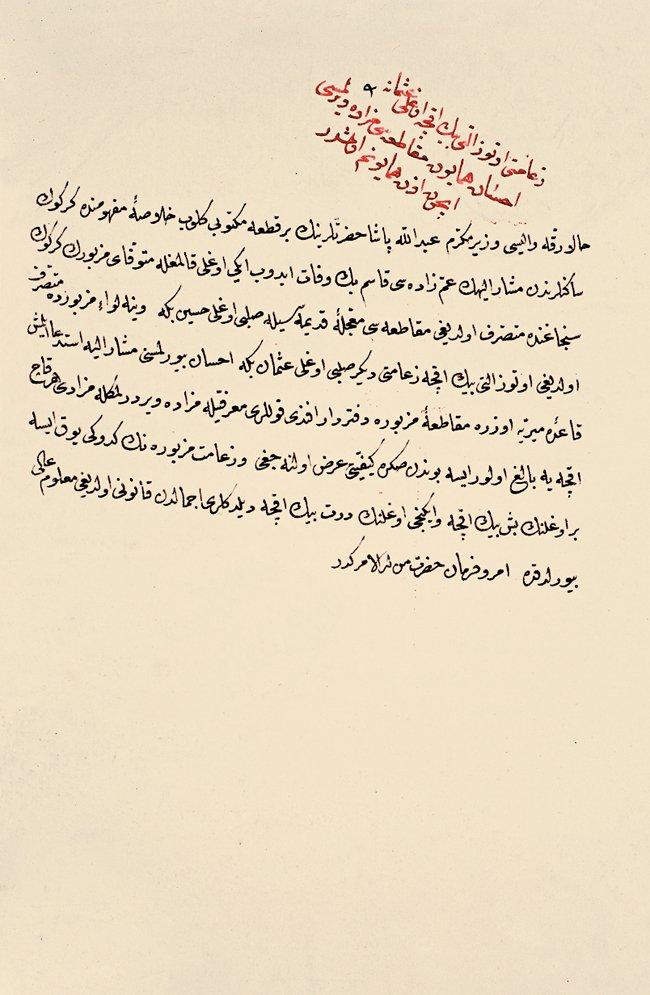 زعامتی اوتوز التی بیك اقچه اوغلی عثمانه
احسان همایون مقاطعه‌سی مزاده ویرلمسی
ایچون اذن همایونم اولمشدر
حالا رقه والیسی وزیر مکرم عبد الله پاشا حضرتلرینك بر قطعه مکتوبی کلوب خلاصهٔ مفهومنده کرکوك
ساکنلرندن مشار الیهك عم زاده‌سی قاسم بك وفات ایدوب ایکی اوغلی قالمغله متوفای مزبورك کرکوك
سنجاغنده متصرف اولدیغی مقاطعه‌سی معجلهٔ قدیمه‌سیله صلبی اوغلی حسین بکه وینه لواء مزبورده متصرف
اولدیغی اوتوز التی بیك اقچه زعامتی دیکر صلبی اوغلی عثمان بکه احسان بیورلمسنی مشار الیه استدعا ایلمش
قاعدهٔ میریه اوزره مقاطعهٔ مزبوره دفتردار افندی قوللری معرفتیله مزاده ویردرلمکله مزادی هر قاچ
اقچه‌یه بالغ اولور ایسه بوندن صکره کیفیتی عرض اولنه‌جغی وزعامت مزبوره‌نك کدوکی یوق ایسه
بر اوغلنك بش بیك اقچه وایکنجی اوغلنك درت بیك اقچه ویلدکلری اجمالدن قانونی اولدیغی معلوم عالی
بیورلدقده امر وفرمان حضرت من له الامرکدر